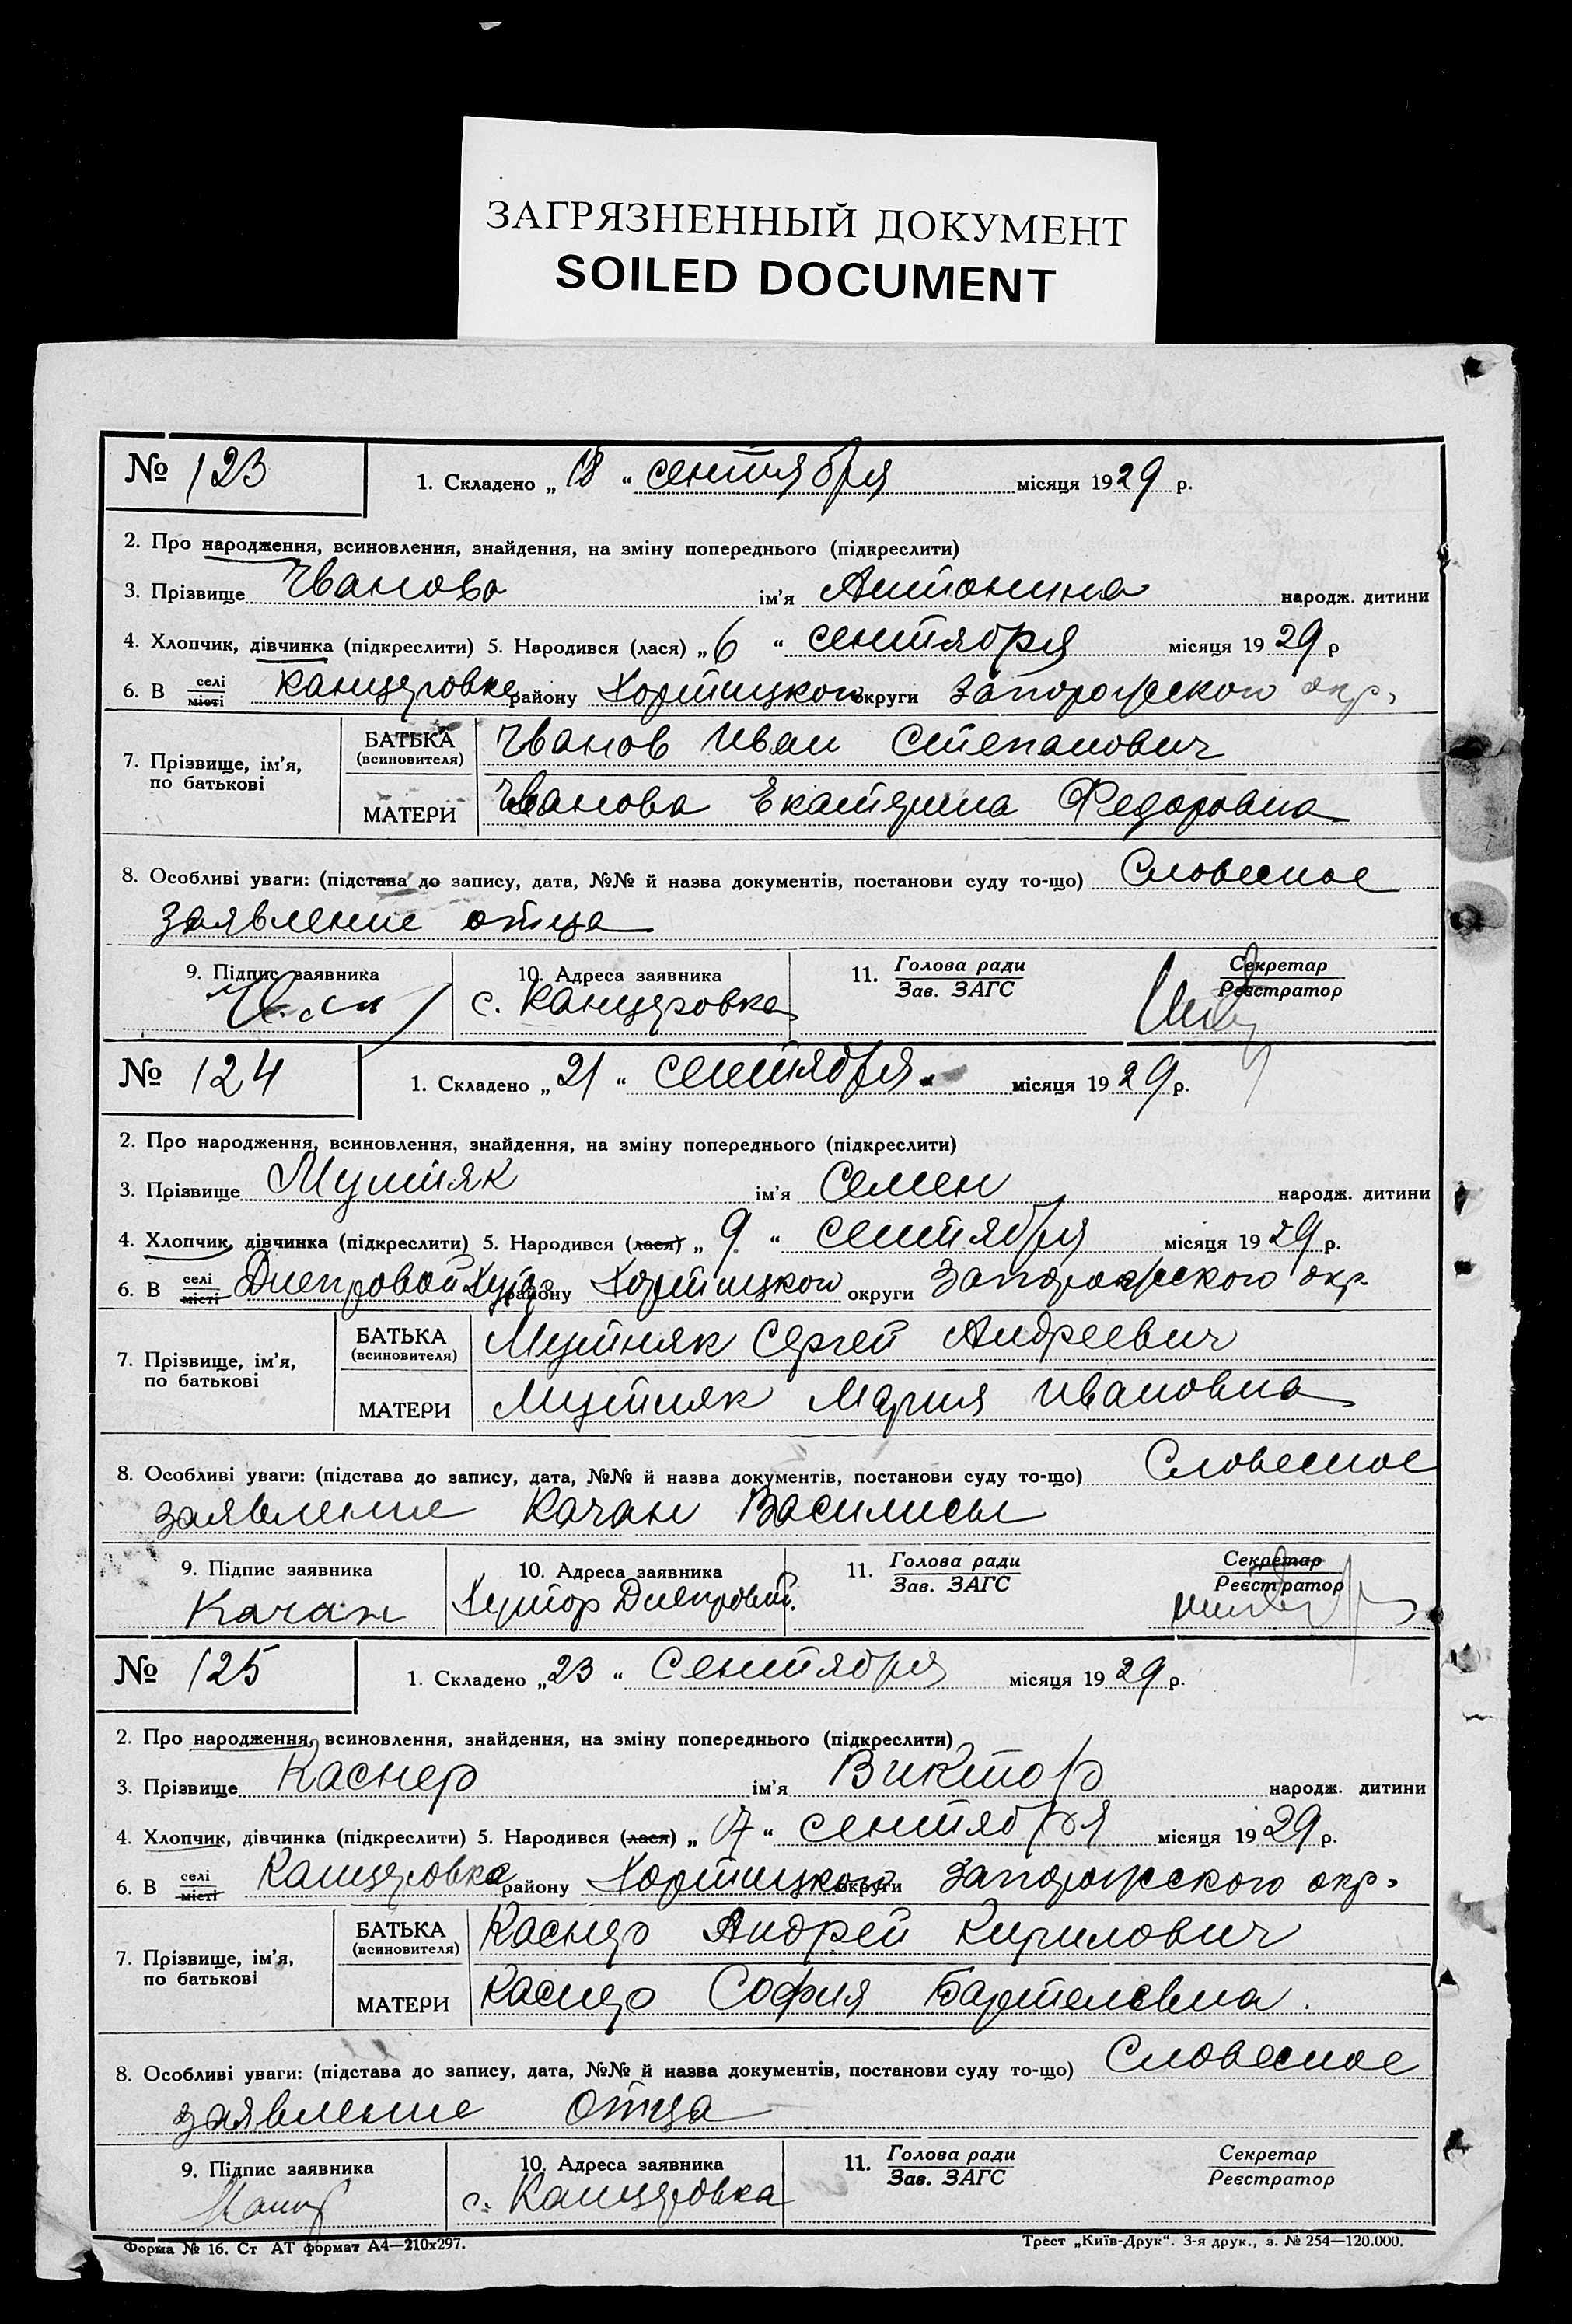 ЗАГРЯЗНЕННЫЙ ДОКУМЕНТ
SOILED DOCUMENT
№ 123 1. Складено „ 18 “ сентября місяця 1929 р.
2. Про народження, всиновлення, знайдення, на зміну попереднього (підкреслити)
3. Прізвище Иванова ім'я Антонина народж. дитини
4. Хлопчик, дівчинка (підкреслити) 5. Народився (лася) „ 6 “ сентября місяця 1929 р
6. В селі місті Канцеровке району Хортицкого округи Запорожского окр.
7. Прізвище, ім'я, по батькові БАТЬКА (всиновителя) Иванов Иван Степанович
МАТЕРИ Иванова Екатерина Федоровна
8. Особливі уваги: (підстава до запису, дата, №№ й назва документів, постанови суду то-що) Словесное
заявление отца
9. Підпис заявника 10. Адреса заявника 11. Голова ради Зав. ЗАГС Секретар Реєстратор
с. Канцеровка
№ 124 1. Складено „ 21 “ сентября місяця 1929 р.
2. Про народження, всиновлення, знайдення, на зміну попереднього (підкреслити)
3. Прізвище Мутняк ім'я Семен народж. дитини
4. Хлопчик, дівчинка (підкреслити) 5. Народився (лася) „ 9 “ сентября місяця 1929 р.
6. В селі місті Днепровой Хут. району Хортицкого округи Запорожского окр.
7. Прізвище, ім'я, по батькові БАТЬКА (всиновителя) Мутняк Сергей Андреевич
МАТЕРИ Мутняк Мария Ивановна
8. Особливі уваги: (підстава до запису, дата, №№ й назва документів, постанови суду то-що) Словесное
заявление Качан Василисы
9. Підпис заявника 10. Адреса заявника 11. Голова ради Зав. ЗАГС Секретар Реєстратор
Качан Хутор Днепровой.
№ 125 1. Складено „ 23 “ Сентября місяця 1929 р.
2. Про народження, всиновлення, знайдення, на зміну попереднього (підкреслити)
3. Прізвище Каснер ім'я Виктор народж. дитини
4. Хлопчик, дівчинка (підкреслити) 5. Народився (лася) „ 17 “ сентября місяця 1929 р.
6. В селі місті Канцеровке району Хортицкого округи Запорожского окр.
7. Прізвище, ім'я, по батькові БАТЬКА (всиновителя) Каснер Андрей Кирилович
МАТЕРИ Каснер София Бартелевна.
8. Особливі уваги: (підстава до запису, дата, №№ й назва документів, постанови суду то-що) Словесное
заявление отца
9. Підпис заявника 10. Адреса заявника 11. Голова ради Зав. ЗАГС Секретар Реєстратор
с. Канцеровка
Форма № 16. Ст АТ формат А4—210х297. Трест „Київ-Друк“. 3-я друк., з. № 254—120.000.